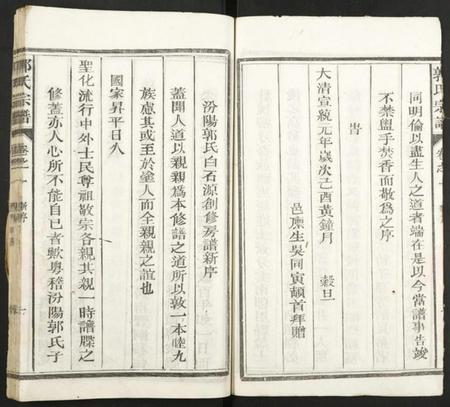 郭氏宗譜
卷之一
同明倫以盡生人之道者端在是以今當譜事告竣
不禁盥手焚香而敬為之序
旹
大清宣統元年歲次己酉黃鐘月 穀旦
邑廩生吳同寅頓首拜贈
汾陽郭氏白石源創修房譜新序
蓋聞人道以親親為本修譜之道所以敦一本睦九
族慮其或至於塗人而全親親之誼也
國家昇平日久
聖化流行中外士民尊祖敬宗各親其親一時譜牒之
修蓋亦人心所不能自已者歟粵稽汾陽郭氏子
郭氏宗譜
卷之一
新序
一